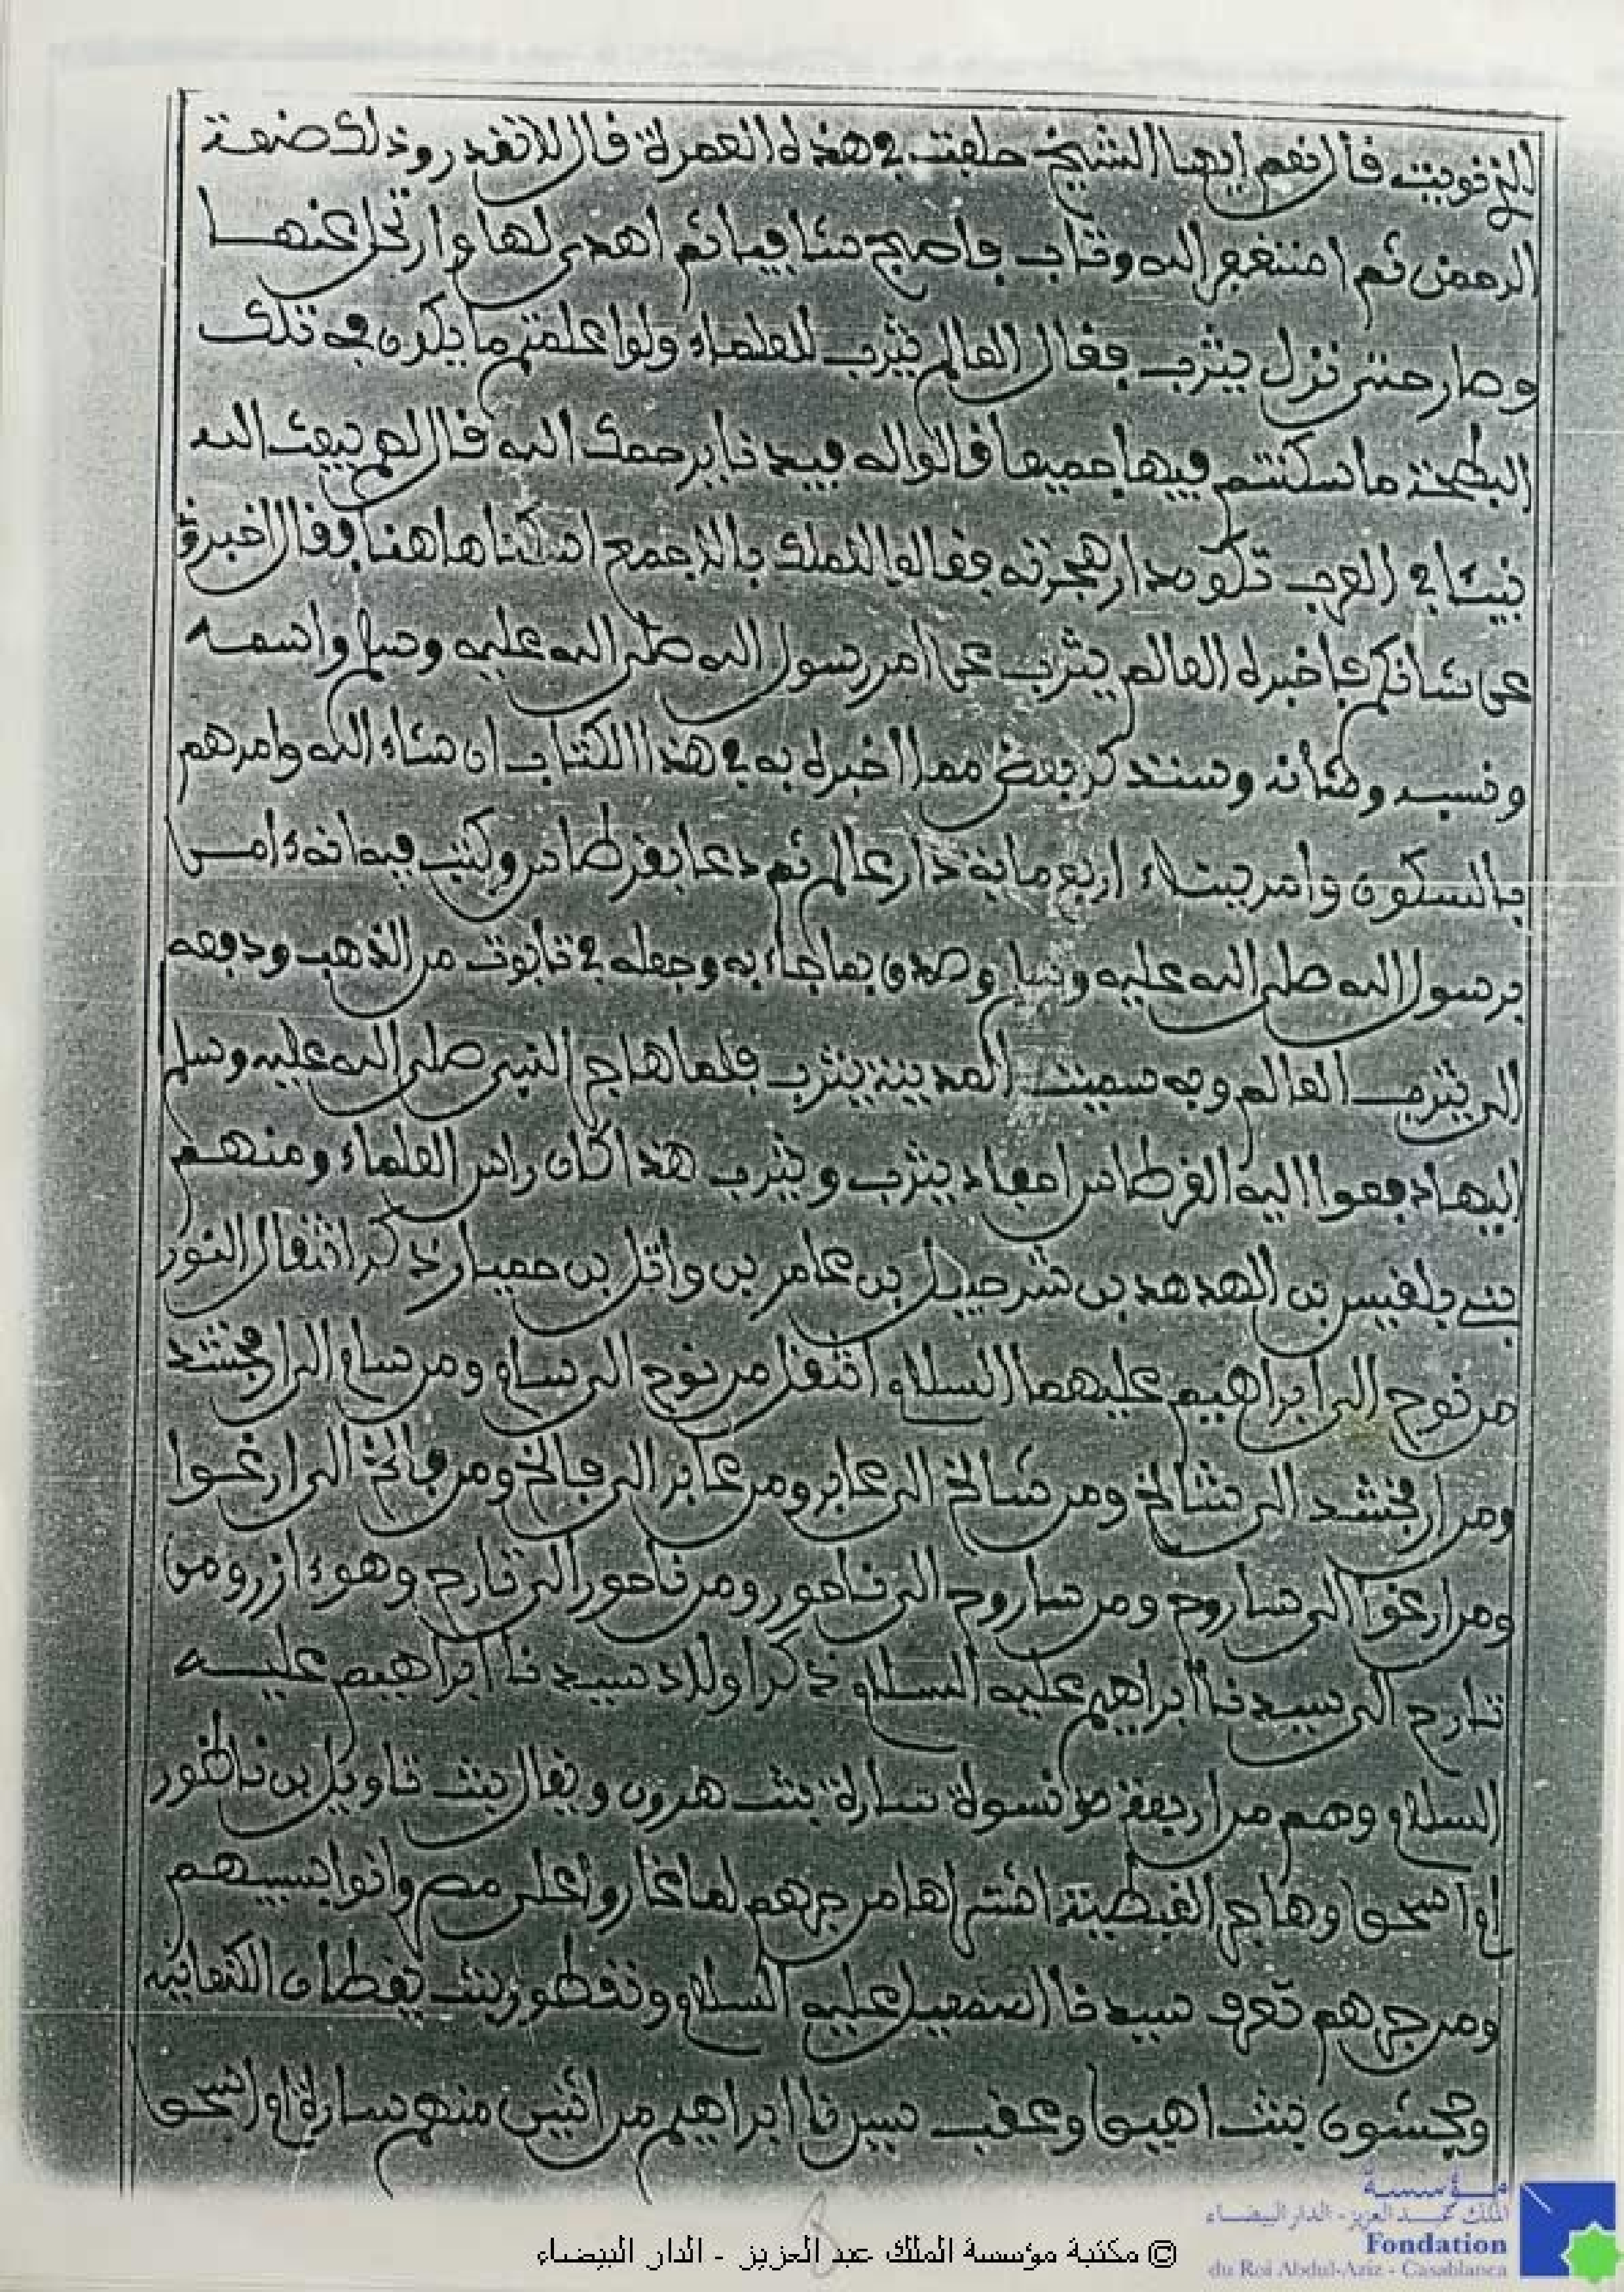 الذي نويت قال نعم أيها الشيخ حلفت في هذه العمرة قال لا تفعل وذلك ضعفة
الرحمن ثم استغفر الله وتاب فاصبح شافيا ثم اهدى لها وارتحل عنها
وصار حتى نزل بيثرب فقال العالم يثرب للعلماء ولوا علمتم ما يكون في تلك
البطحة ما سكنتم فيها جميعا قالوا له فيدنا يرحمك الله قال لهم يبعث الله
نبيئا في العرب تكون دار هجرته فقالوا للملك بالاجمع اسكنا هاهنا وقال اخبرو
عن شانكم فاخبره العالم يثرب عن امر رسول الله صلى الله عليه وسلم واسمه
ونسبه وشانه وسنذكر بعض مما اخبره به في هذا الكتاب ان شاء الله وامرهم
بالسكون وامر ببناء اربع ماية دار عالم ثم دعا بقرطاس وكتب فيه انه ءامن
برسول الله صلى الله عليه وسلم وصدق بما جاء به وجعله في تابوت من الذهب ودفعه
الى يثرب العالم وبه سميت المدينة يثرب فلما هاج النبي صلى الله عليه وسلم
اليها دفعوا اليه القرطاس احفاد يثرب ويثرب هذا كان راس العلماء ومنهم
بنى بلقيس بن الهدهد بن شرحيل بن عامر بن واثل بن حميار ذكر انتقال النور
من نوح الى ابراهيم عليهما السلام انتقل من نوح الى سام ومن سام الى ارفخشد
ومن ارفخشد الى شالخ ومن شالخ الى عابر ومن عابر الى فالخ ومن فالخ الى ارغوا
ومن ارغوا الى ساروح ومن ساروح الى ناحور ومن ناحور الى تارح وهو ءازر ومن
تارح الى سيدنا ابراهيم عليه السلام ذكر اولاد سيدنا ابراهيم عليه
السلام وهم من اربعة نسوة سارة بنت هرون ويقال بنت تاويل بن ناحور
ام اسحق وهاجر القبطية اشتراها من جرهم لما غاروا على مصر واتوا بسبيهم
ومن جرهم تعرف سيدنا اسمعيل عليه السلام ونفطور بنت يفطان الكنعانيه
وحجشون بنت اهين وعقب سيدنا ابراهيم من اثنين منهم سارة ام اسحق
© مكتبة مؤسسة الملك عبد العزيز - الدار البيضاء
مؤسسة
الملك عبد العزيز - الدار البيضاء
Fondation
du Roi Abdul-Aziz - Casablanca